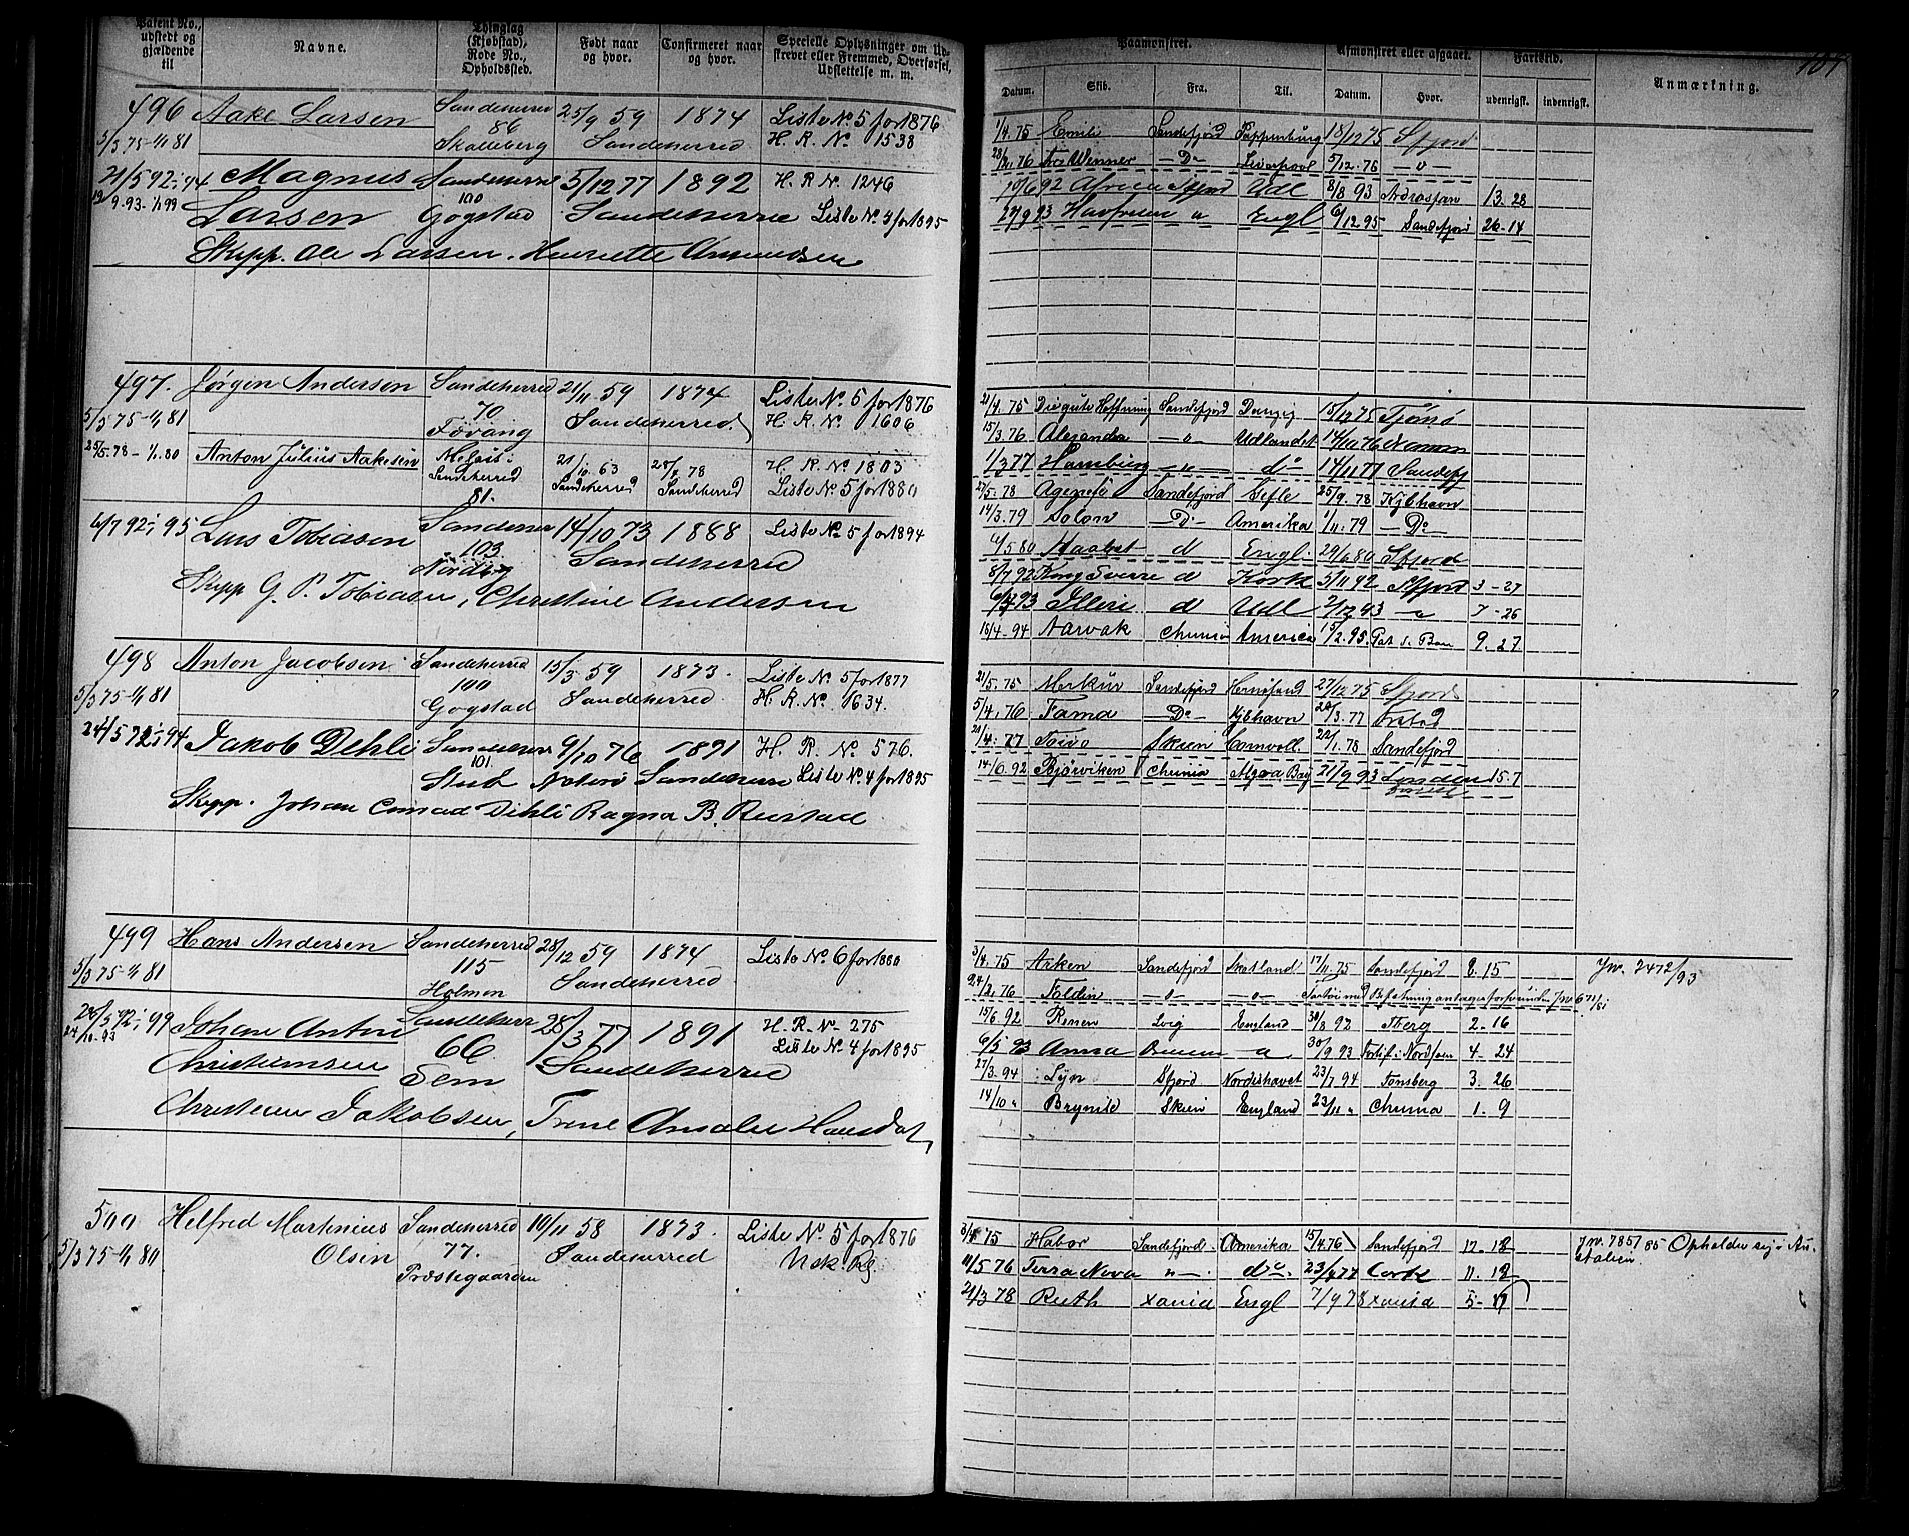 Patent No., udstedt og gjældende til
Navne.
Thinglag (Kjøbstad), Rode No., Opholdssted.
Født naar og hvor.
Confirmeret naar og hvor.
Specielle Oplysninger om Udskrevet eller Fremmed, Overførsel, Udslettelse m. m.
496 Aake Larsen Sandeherred 25/9 59 1874 Liste No 5 for 1876
5/3 75 - 1/1 81 86 Skalleberg Sandeherred H. R. No 1538
21/5 92 i 94 Magnus Sandeherre 5/12 77 1892 H. R No. 1246
9-93-1/1 99 Larsen 100 Gogstad Sandeherre Liste No. 3 for 1895
Skipp. Ole Larsen. Henriette Amundsen
497. Jørgen Andersen Sandeherred 21/11 59 1874 Liste No. 5 for 1876
5/3 75 - 1/1 81 70 Fovang Sandeherred. H. R. No 1606
25/5. 78 - 1/1. 80 Anton Julius Aakesen Sandeherred 81. 21/10. 63 Sandeherred 78 Sandeherred H. R. No 1803 Liste No. 5 for 1880
6/7 92 i 95 Lars Tobiasen 103 14/10 73 1888 Sandeherre Liste No 5 for 1894
Skipp G. P. Tobiasen, Christine Andersen
498 Anton Jacobsen Sandeherred 15/3 59 1873. Liste No. 5 for 1877
5/3 75 - 1/1 81 100 Gogstad Sandeherred. H. R. No. 1634.
24/5 92 i 94 Jakob Dehli 101. 9/10 76 1891 H. R. No. 576.
Stub Nøterø Sandeherre Liste No. 4 for 1895
Skipp. Johan Conrad Dehli Ragna B. Rustad
499 Hans Andersen Sandeherred 28/12 59 1874 Liste No. 6 for 1880
5/3 75 - 1/1 81 115 Holmen Sandeherred
Johan Anton Sandeherr 28/3 77 1891 H. R. No 275
Christiansen 66 Sem Sandeherre Liste No. 4 for 1895
Christian Jakobsen, Trine Amalie Hansdat
500 Helfred Martinius Sandeherred 10/11 58 1873. Liste No. 5 for 1876
5/3 75 - 1/1 80 Olsen 77. Præstegaarden Sandeherred
Paamønstret.
Afmønstret eller afgaaet.
Fartstid.
Anmærkning.
Datum. Skib. Fra. Til. Datum. Hvor. udenrigsk. indenrigsk.
1/4. 75 Emilie Sandefjord Pappenburg 18/12 75 Sfjord
76 Wenner - Do Liverpool 5/12. 76 - o -
10/6 92 Africa Sfjord Udl 8/8 93 13. 28
27/9 93 Havfruen Engl 6/12 95 Sandefjord 26-14
21/4. 75 Die gute Hoffnung Sandefjord Danzig 15/12 75 Tjømø
15/3. 76 Alexandra - o - Udlandet 14/11 76
1/3 77 Hamburg - " - do 14/11 77 Sandefj
27/5. 78 Agenete Sandefjord Gefle 25/9. 78 Kjøbhavn
14/3. 79 Solon - Do - Amerika 1/11. 79 - Do
4/5 80 Haabet d Engl. 29/6 80 Sfjord
8/7 92 Kong Sverre d Kork 5/11 92 Sfjord 3 - 27
93 d Udl 7 - 26
16/4 - 94 Narvak Chrnia America 15/2. 95. 9. 27
21/5. 75 Merkur Sandefjord Hernøsand 27/12 75 Sfjord
5/4. 76 Fama - Do - Kjøbhavn 28/3. 77
Toivo Skien Cornvall. 22/1. 78 Sandefjord
14/6. 92 Bjørviken Chrnia 21/9 93 15. 7
3/4. 75 Arken Sandefjord Skotland 17/11. 75 Sandefjord 8. 15 Jw. 2472/93
76 Foldin - o - - o -
15/6 92 Renen Lvig England 30/8 92 Tberg 2 - 16
6/5 93 Anna 30/9 93 Forlis i Nordsøen 4 - 24
27/3. 94 Lyn Sfjord Nordishavet 23/7 94 Tønsberg 3. 26
14/10 " Brynild Skien England 23/11 " Chrnia 1. 9
75 Habor Sandefjord. Amerika 15/4. 76 Sandefjord 12. 12 Jw. 785/85 Opholder sig i Australien.
11/5 76 Terra Nova " do. Cork 11. 12
21/3 78 Ruth Xania Engl 7/9 78 Xania